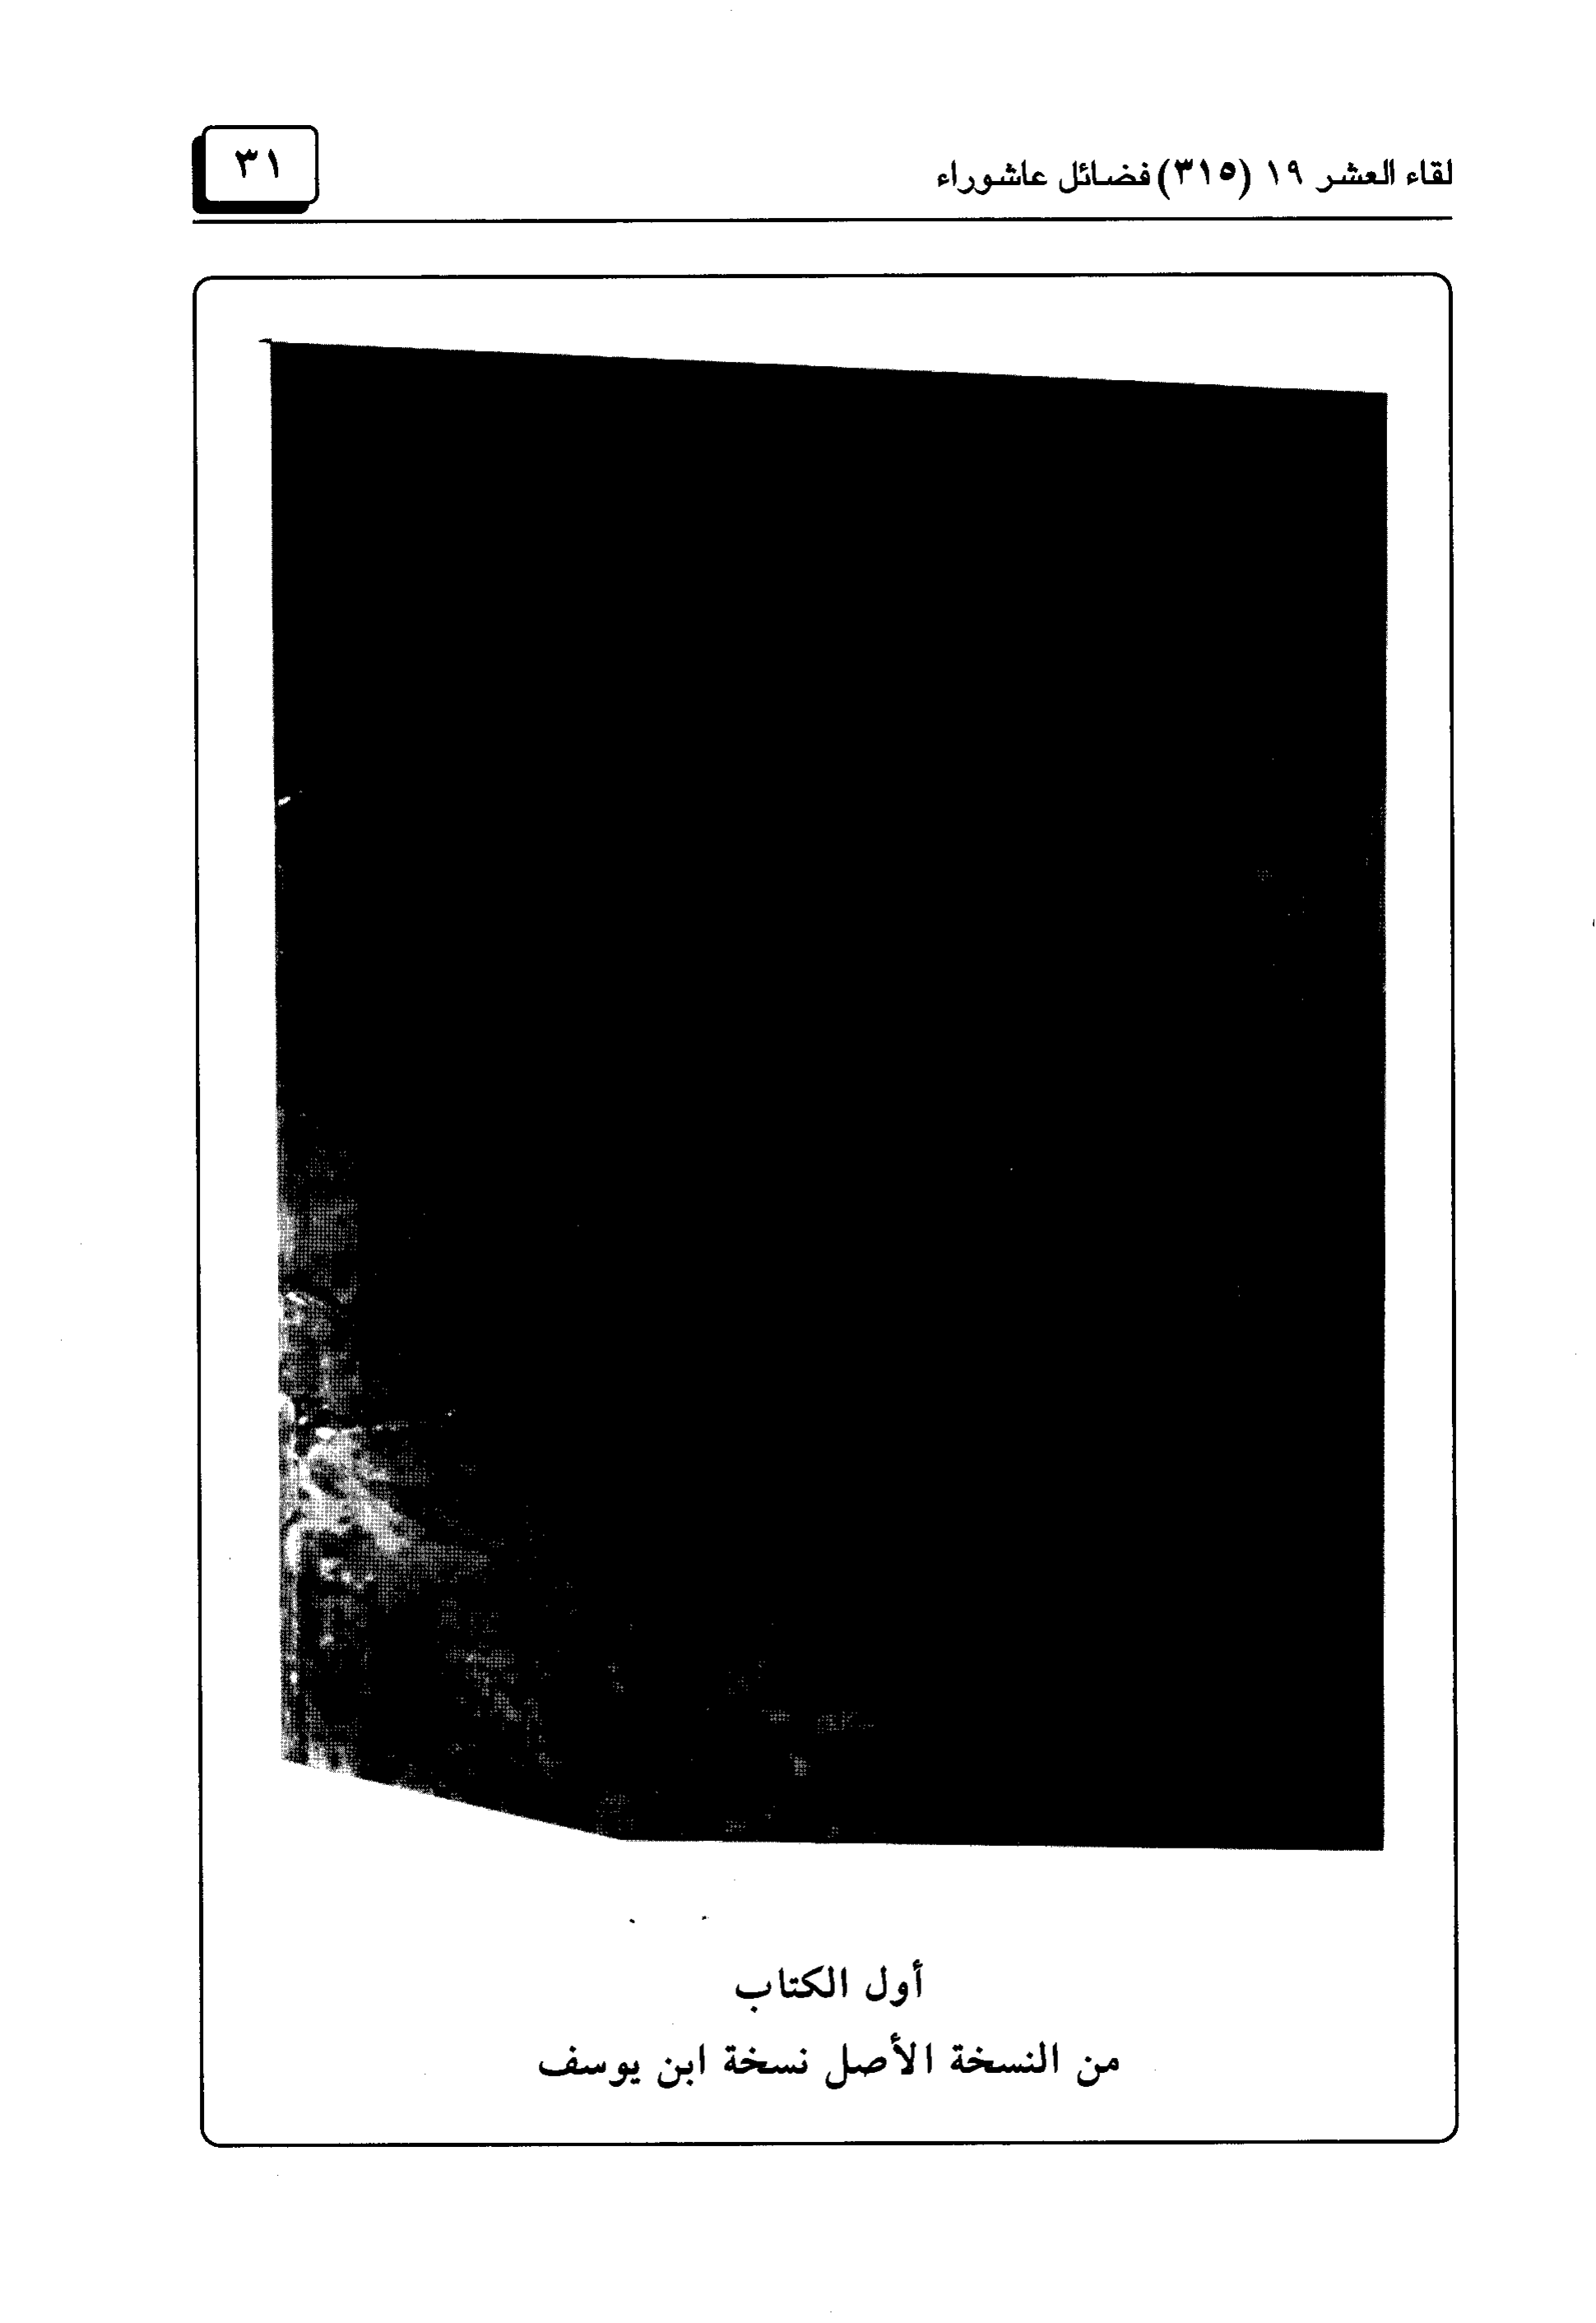 لقاء العشر ١٩ (٣١٥) فضائل عاشوراء
٣١
أول الكتاب
من النسخة الأصل نسخة ابن يوسف